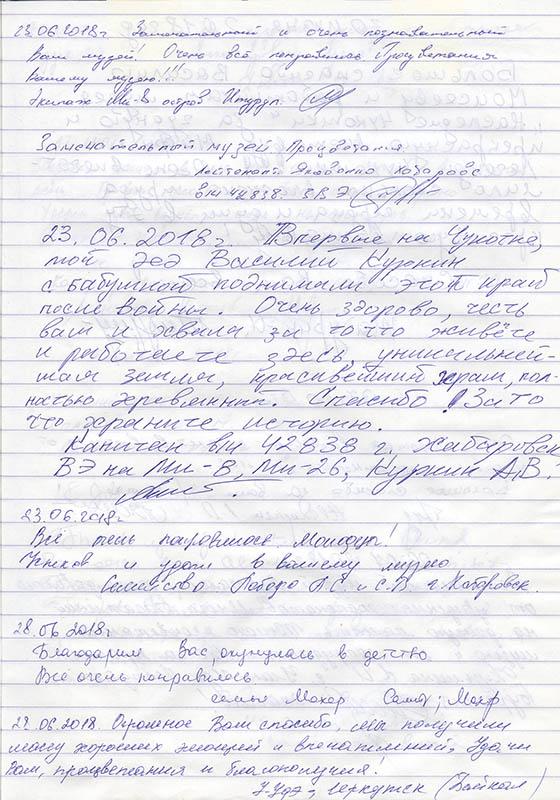 23.06.2018г Замечательный и очень познавательный
Ваш музей! Очень всё понравилось Процветания
Вашему музею!!!
Экипаж Ми-8 остров Итуруп.
Замечательный музей Процветания
Лейтенант Яковенко Хабаровс
в/ч 42838. ЗВЭ
23.06.2018г. Впервые на Чукотке,
мой дед Василий Куркин
с бабушкой поднимали этот край
после войны. Очень здорово, честь
вам и хвала за то что живёте
и работаете здесь, уникальней-
шая земля, красивейший храм, пол-
ностью деревянный. Спасибо! За то
что храните историю.
Капитан в/ч 42838 г. Хабаровск
ВЭ на Ми-8, Ми-26, Куркин А.В.
23.06.2018г
Всё очень понравилось. Молодцы!
Успехов и удачи в вашему музею
Семейство С.В г. Хабаровск.
28.06 2018г
Благодарим Вас, окунулась в детство
Всё очень понравилось
семья
28.06.2018. Огромное Вам спасибо, мы получили
массу хороших эмоций и впечатлений, Удачи
Вам, процветания и благополучия!
У-Удэ, Иркутск (Байкал)